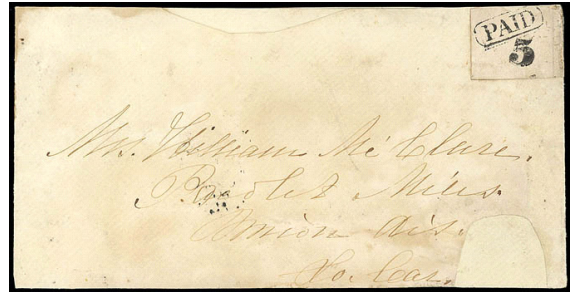 PAID
5
Mrs. William Mc Clure.
Pacolet Mills.
Union Dis.
So. Car.